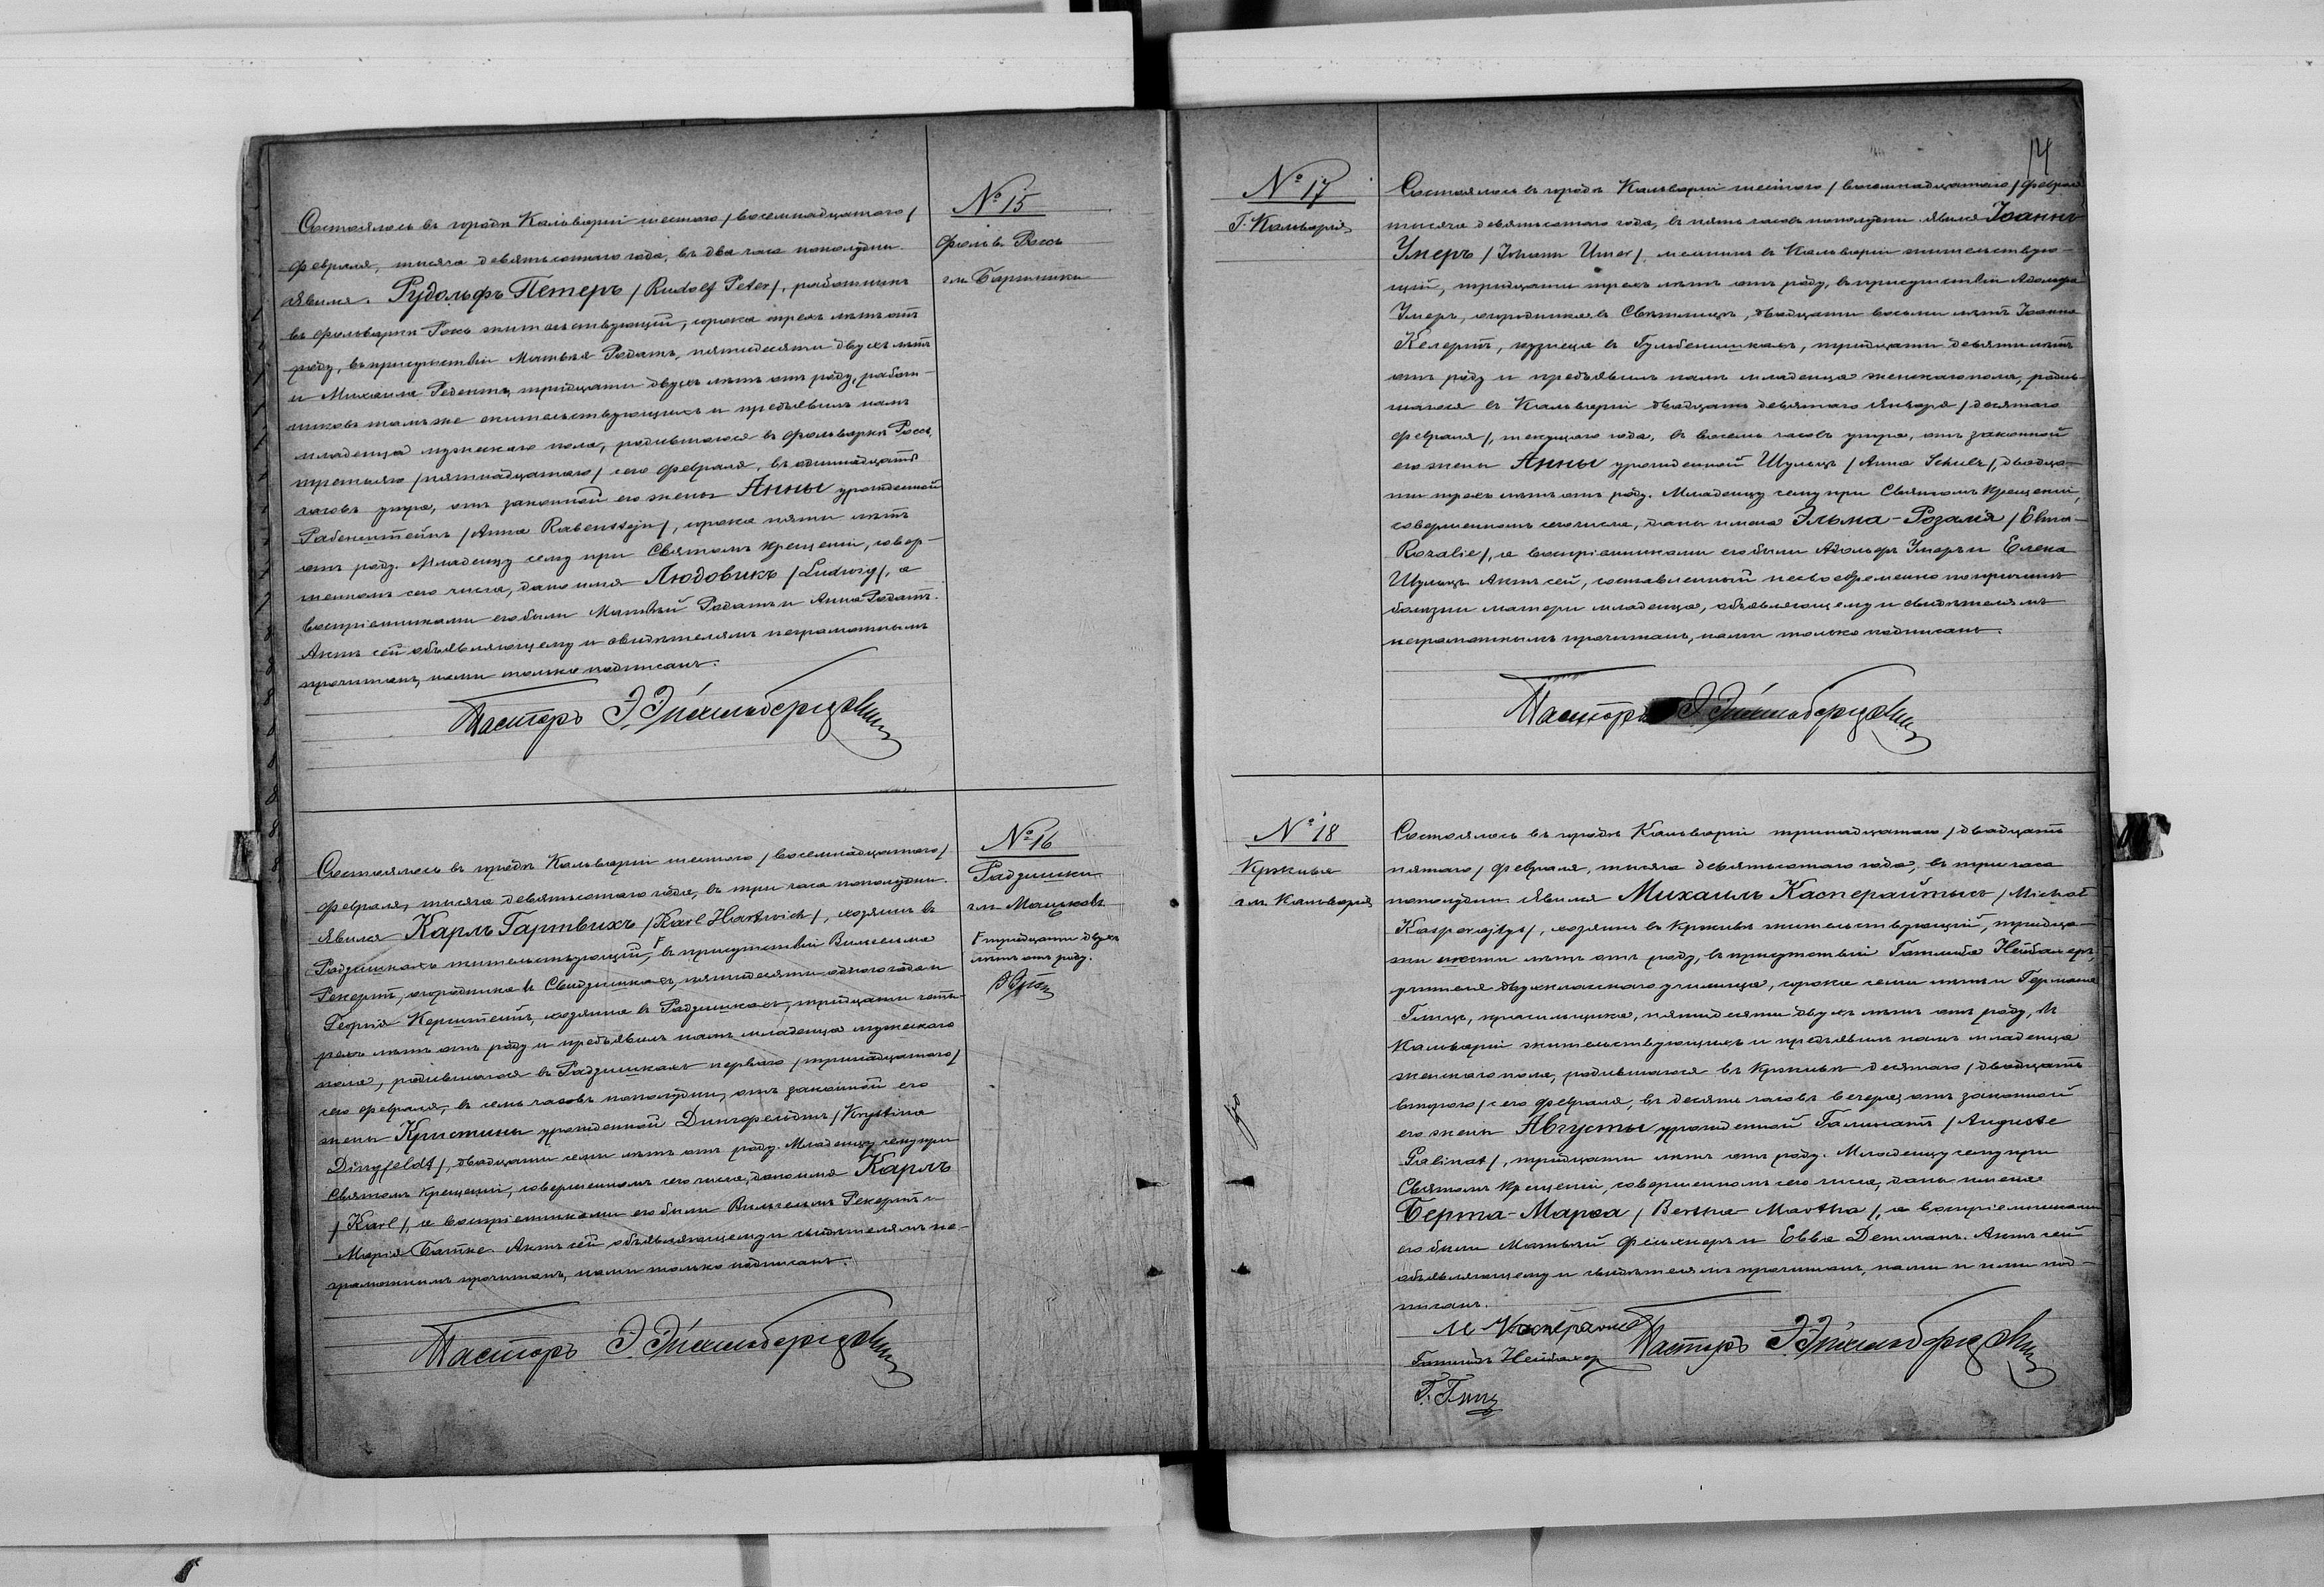 № 15
фольв. Россь
гм. Бартники
Состоялось въ городѣ Кальваріи шестого /восемнадцатаго/
февраля, тысяча девятьсотаго года, въ два часа пополудни.
Явился Рудольфъ Петеръ /Rudolf Peter/, работникъ
въ фольваркѣ Россь жительствующій, сорока трехъ лѣтъ отъ
роду, въ присутствіи Матвѣя Родатъ, пятидесяти двухъ лѣтъ
и Михаила Редентъ, тридцати двухъ лѣтъ отъ роду, работ-
никовъ тамъ же жительствующихъ и предъявилъ намъ
младенца мужескаго пола, родившагося въ фольваркѣ Россь,
третьяго /пятнадцатаго/ сего февраля, въ одиннадцать
часовъ утра, отъ законной его жены Анны урожденной
Рабенштейнъ /Anna Rabenstejn/, сорока пяти лѣтъ
отъ роду. Младенцу сему при Святомъ Крещеніи, совер-
шенномъ сего числа, дано имя Людовикъ /Ludwig/, а
воспріемниками его были Матвѣй Родатъ и Анна Родатъ.
Актъ сей объявляющему и свидѣтелямъ неграмотнымъ
прочитанъ, нами только подписанъ.
Пасторъ Э.
№ 16
Радзишки
гм. Мацковъ
Г тридцати двухъ
лѣтъ отъ роду.
Состоялось въ городѣ Кальваріи шестого /восемнадцатаго/
февраля, тысяча девятьсотаго года, въ три часа пополудни.
Явился Карлъ Гартвихъ /Karl Hartwich/, хозяинъ въ
Радзишкахъ жительствующій, Г въ присутствіи Вильгельма
Рекертъ, огородника въ Свидзишкахъ, пятидесяти одного года и
Георгія Керштейнъ, хозяина въ Радзишкахъ, тридцати четы-
рехъ лѣтъ отъ роду и предъявилъ намъ младенца мужескаго
пола, родившагося въ Радзишкахъ перваго /тринадцатаго/
сего февраля, въ семь часовъ пополудни, отъ законной его
жены Кристины урожденной Дингфельдтъ /Krystina
Dingfeldt/, двадцати семи лѣтъ отъ роду. Младенцу сему при
Святомъ Крещеніи, совершенномъ сего числа, дано имя Карлъ
/Karl/, а воспріемниками его были Вильгельмъ Рекертъ и
Марія Батке. Актъ сей объявляющему и свидѣтелямъ не-
грамотнымъ прочитанъ, нами только подписанъ.
Пасторъ Э.
14
№ 17
Г. Кальварія
Состоялось въ городѣ Кальваріи шестого /восемнадцатаго/ февраля
тысяча девятьсотаго года, въ пять часовъ пополудни. Явился Іоаннъ
Умеръ /Johann Umer/, мѣщанинъ въ Кальваріи жительствую-
щій, тридцати трехъ лѣтъ отъ роду, въ присутствіи Адольфа
Умеръ, огородника въ Свѣтлицѣ, двадцати восьми лѣтъ Іоанна
Келертъ, кузнеца въ Гульбенишкахъ, тридцати девяти лѣтъ
отъ роду и предъявилъ намъ младенца женскаго пола, родив-
шагося въ Кальваріи двадцать девятаго января /десятаго
февраля/, текущаго года, въ восемь часовъ утра, отъ законной
его жены Анны урожденной Шульцъ /Anna Schulz/, двадца-
ти трехъ лѣтъ отъ роду. Младенцу сему при Святомъ Крещеніи,
совершенномъ сего числа, даны имена Эльма-Розалія /Elma-
Rozalie/, а воспріемниками его были Адольфъ Умеръ и Елена
Шульцъ. Актъ сей, составленный несвоевременно по причинѣ
болѣзни матери младенца, объявляющему и свидѣтелямъ
неграмотнымъ прочитанъ, нами только подписанъ.
Пасторъ Э.
№ 18
гм. Кальварія
Состоялось въ городѣ Кальваріи тринадцатаго /двадцать
пятаго/ февраля, тысяча девятьсотаго года, въ три часа
пополудни. Явился Михаилъ Касперайтысъ /Michał
Kasperajtys/, хозяинъ въ жительствующій, тридца-
ти шести лѣтъ отъ роду, въ присутствіи Готлиба Нейбахеръ,
учителя двухкласснаго училища, сорока семи лѣтъ и Германа
Глицъ, красильщика, пятидесяти двухъ лѣтъ отъ роду, въ
Кальваріи жительствующихъ и предъявилъ намъ младенца
женскаго пола, родившагося въ десятаго /двадцать
второго/ сего февраля, въ десять часовъ вечера, отъ законной
его жены Августы урожденной Галинатъ /Auguste
Galinat/, тридцати лѣтъ отъ роду. Младенцу сему при
Святомъ Крещеніи, совершенномъ сего числа, даны имена
Берта-Марѳа /Bertha-Martha/, а воспріемниками
его были Матвѣй Фельхнеръ и Евва Детманъ. Актъ сей
объявляющему и свидѣтелямъ прочитанъ, нами и ими под-
писанъ.
М
Готлибъ Нейбахеръ Пасторъ Э.
Г. Глицъ